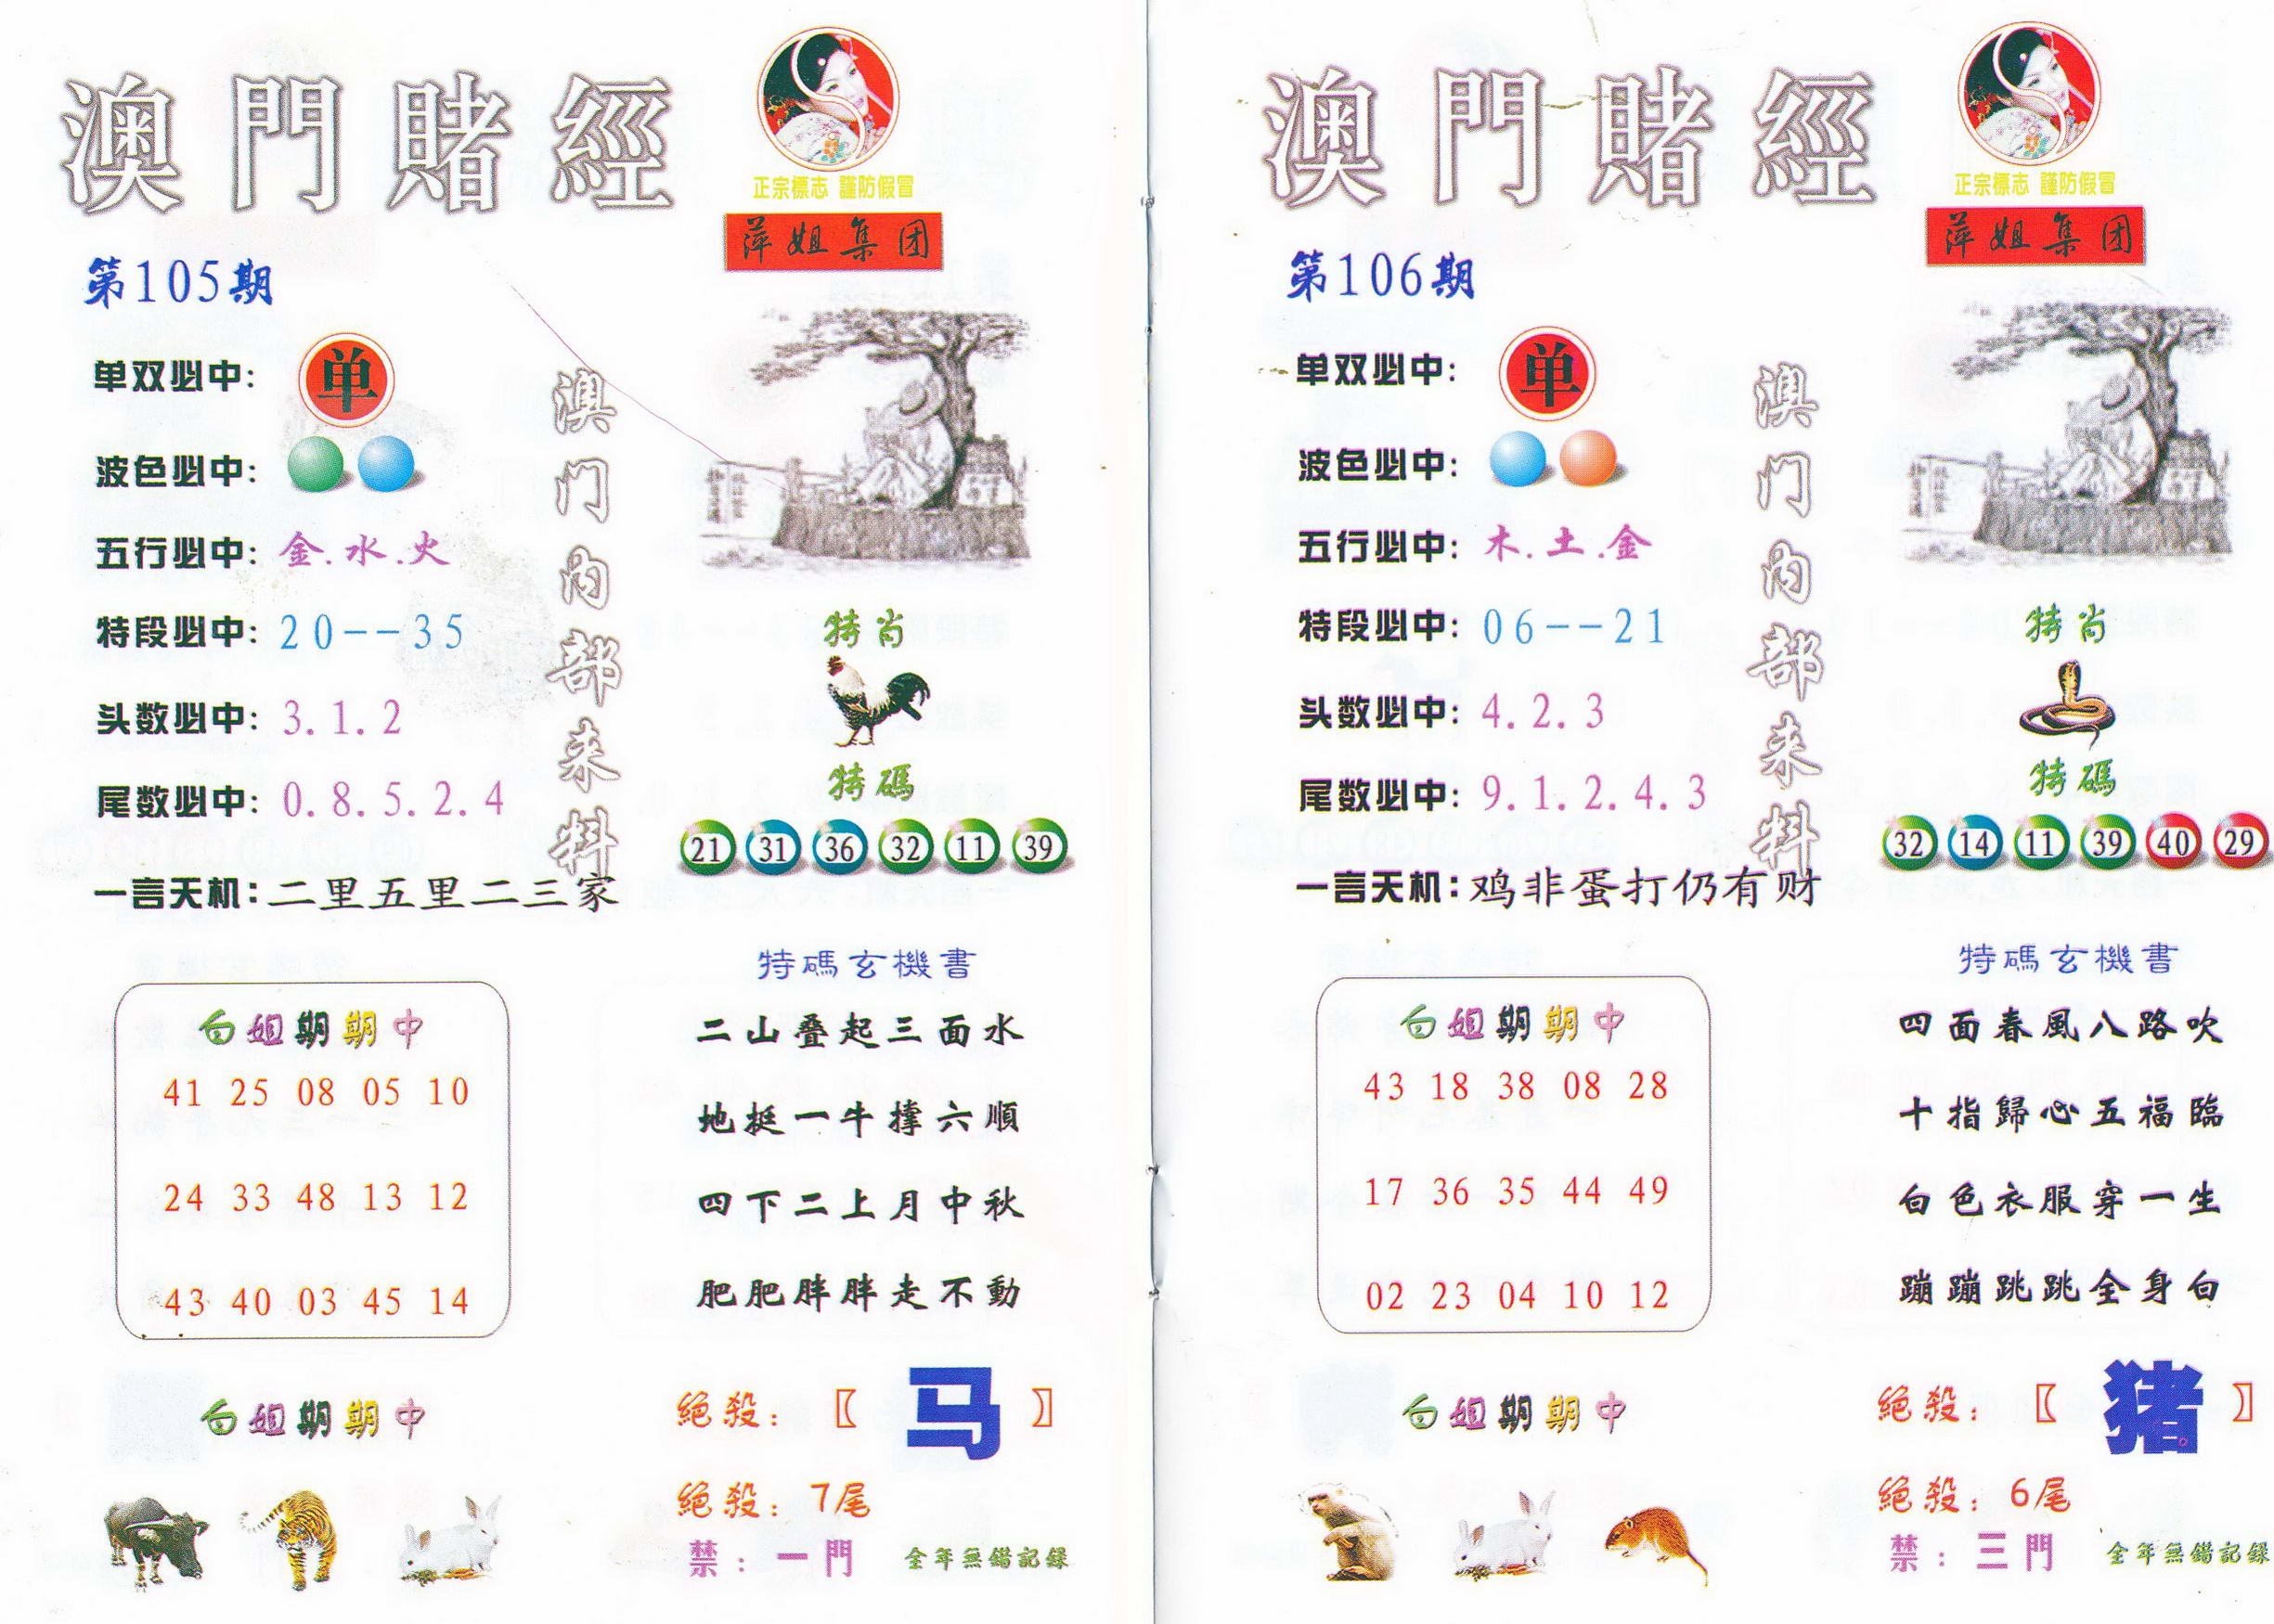 澳門賭經
正宗標志 謹防假冒
萍姐集团
第105期
单双必中: 单
波色必中:
五行必中: 金.水.火
特段必中: 20--35
头数必中: 3.1.2
尾数必中: 0.8.5.2.4
一言天机: 二里五里二三家
澳门内部来料
特肖
特碼
21 31 36 32 11 39
白姐期期中
41 25 08 05 10
24 33 48 13 12
43 40 03 45 14
特碼玄機書
二山叠起三面水
地挺一牛撑六順
四下二上月中秋
肥肥胖胖走不動
白姐期期中
絕殺:〖马〗
絕殺: 7尾
禁: 一門
全年無錯記録
澳門賭經
正宗標志 謹防假冒
萍姐集团
第106期
单双必中: 单
波色必中:
五行必中: 木.土.金
特段必中: 06--21
头数必中: 4.2.3
尾数必中: 9.1.2.4.3
一言天机: 鸡非蛋打仍有财
澳门内部来料
特肖
特碼
32 14 11 39 40 29
白姐期期中
43 18 38 08 28
17 36 35 44 49
02 23 04 10 12
特碼玄機書
四面春風八路吹
十指歸心五福臨
白色衣服穿一生
蹦蹦跳跳全身白
白姐期期中
絕殺:〖猪〗
絕殺: 6尾
禁: 三門
全年無錯記録